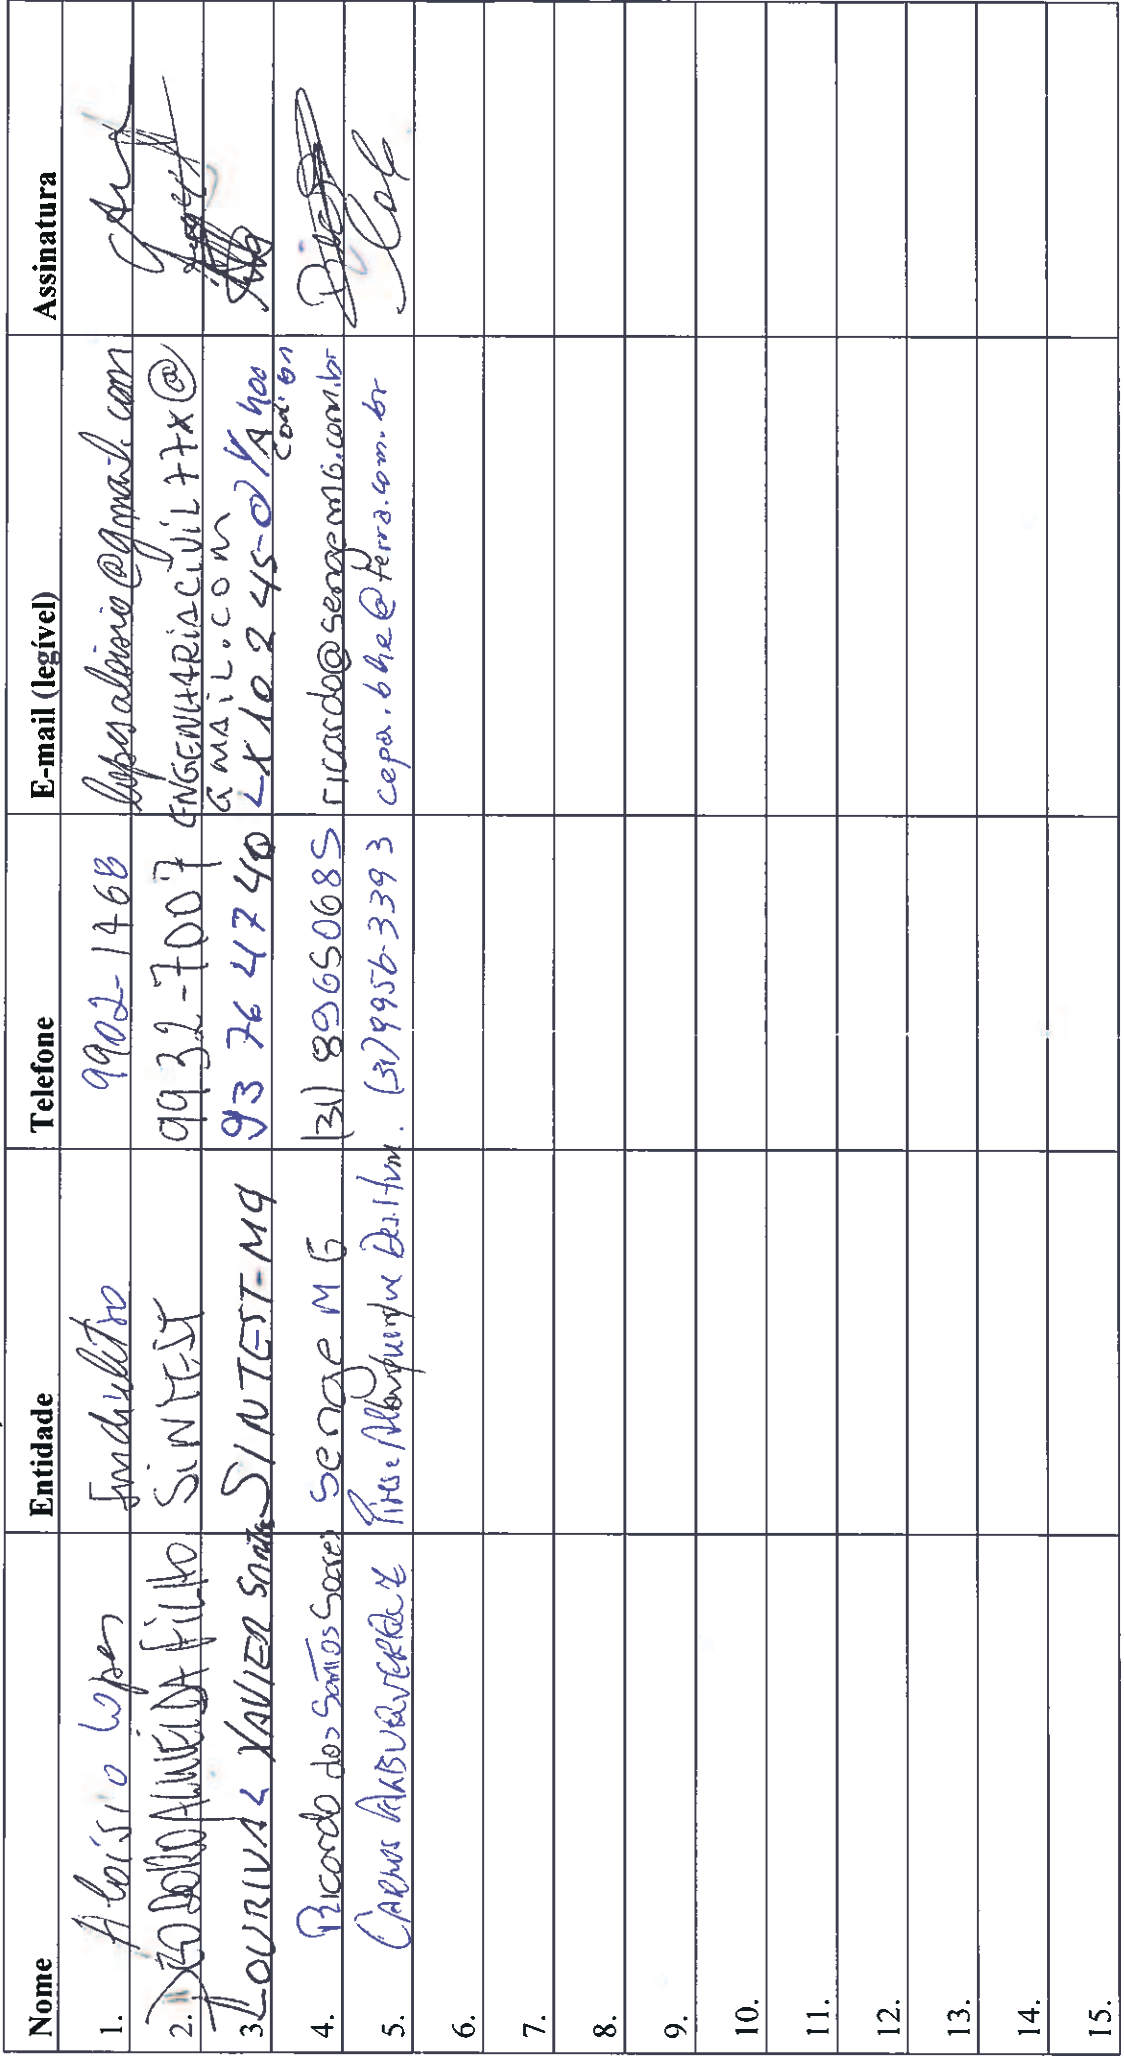 Nome Entidade Telefone E-mail (legível) Assinatura
1. Aloísio Lopes 9902-1468 lopesaloisio@gmail.com
2. ALMEIDA FILHO SINTEST 9932-7007 ENGENHARIACIVIL77X@
GMAIL.COM
3 LOURIVAL XAVIER SINTEST-MG 93 76 47 40 LX10245-@YAHOO
COM.BR
4. Ricardo dos Santos Soares Senge MG (31) 89650685 ricardo@sengemg.com.br
5. CARLOS ALBUQUERQUE Pires e Albuquerque (31) 9956-3393 cepa.bhe@terra.com.br
6.
7.
8.
9.
10.
11.
12.
13.
14.
15.